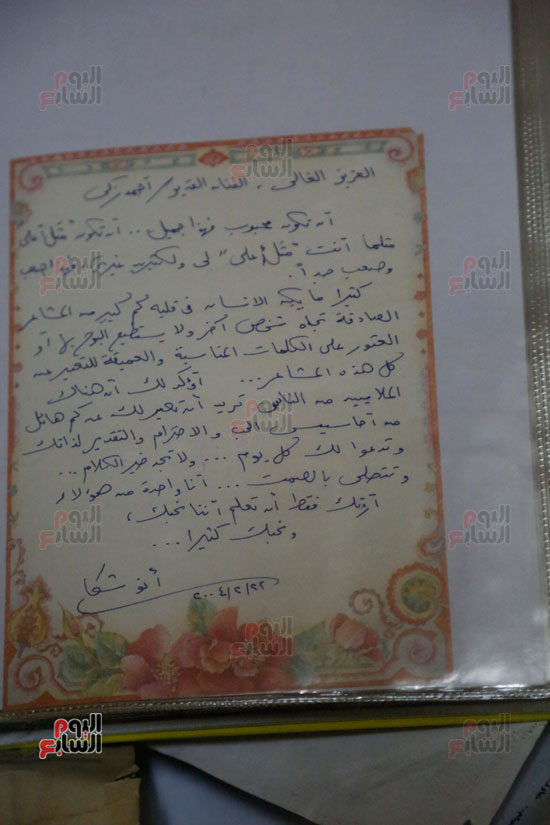 اليوم السابع
اليوم السابع
العزيز الغالى .. الفنان القدير / أحمد زكى
أن تكون محبوب فهذا جميل .. أن تكون "مثل أعلى
مثلما أنت "مثل أعلى" لى ولكثيرين غيرى .. فهذا صعب
وصعب جداً.
كثيراً ما يكن الإنسان فى قلبه كم كبير من المشاعر
الصادقة تجاه شخص آخر ولا يستطيع البوح بها أو
العثور على الكلمات المناسبة والعميقة للتعبير عن
كل هذه المشاعر ... أؤكد لك أن هناك
الملايين من الناس تريد أن تعبر لك عن كم هائل
من أحاسيس الحب والاحترام والتقدير لذاتك
وتدعوا لك كل يوم ... ولا تجد خير الكلام ...
وتتحلى بالصمت ... أنا واحدة من هؤلاء
أردتك فقط أن تعلم أننا نحبك،
ونحبك كثيراً ...
٢٠٠٤/٢/٢٢
اليوم السابع
اليوم السابع